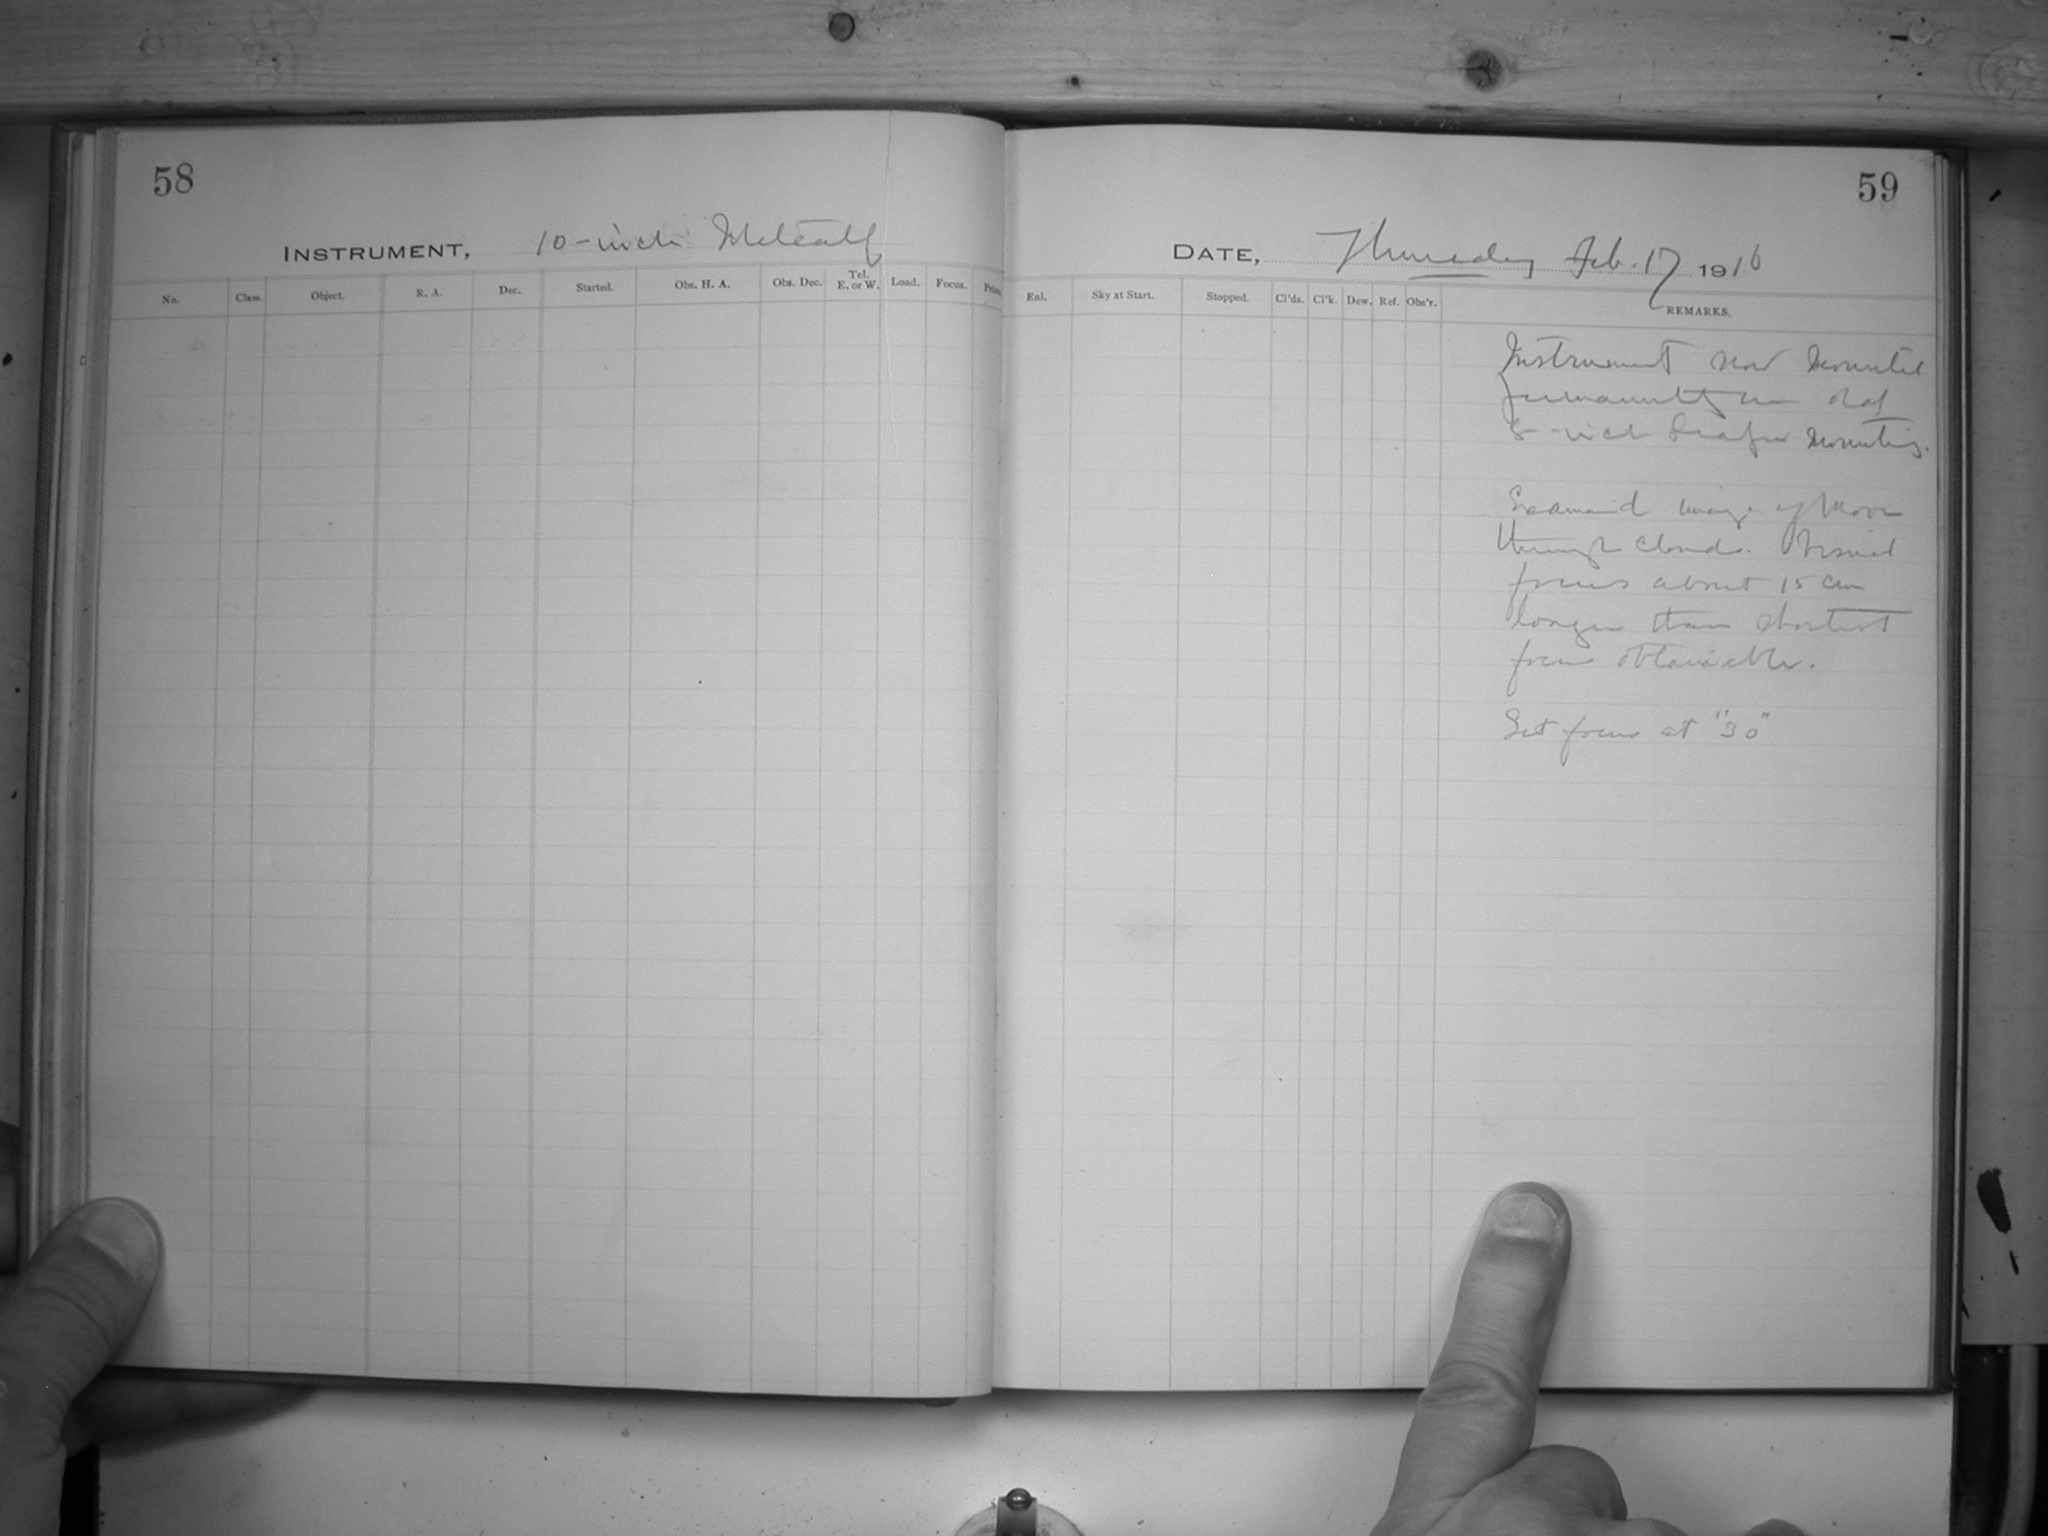 58
INSTRUMENT, 10-inch Metcalf
No. Class. Object. R. A. Dec. Started. Obs. H. A. Obs. Dec. Tel. E. or W. Load. Focus.
59
DATE, Thursday Feb. 17 1916
Enl. Sky at Start. Stopped. Cl'ds. Cl'k. Dew. Ref. Obs'r. REMARKS.
Instrument now mounted
permanently in old
8-inch Draper mounting.
Examined image of Moon
through clouds. Visual
focus about 15 cm
longer than shortest
focus obtainable.
Set focus at "30"